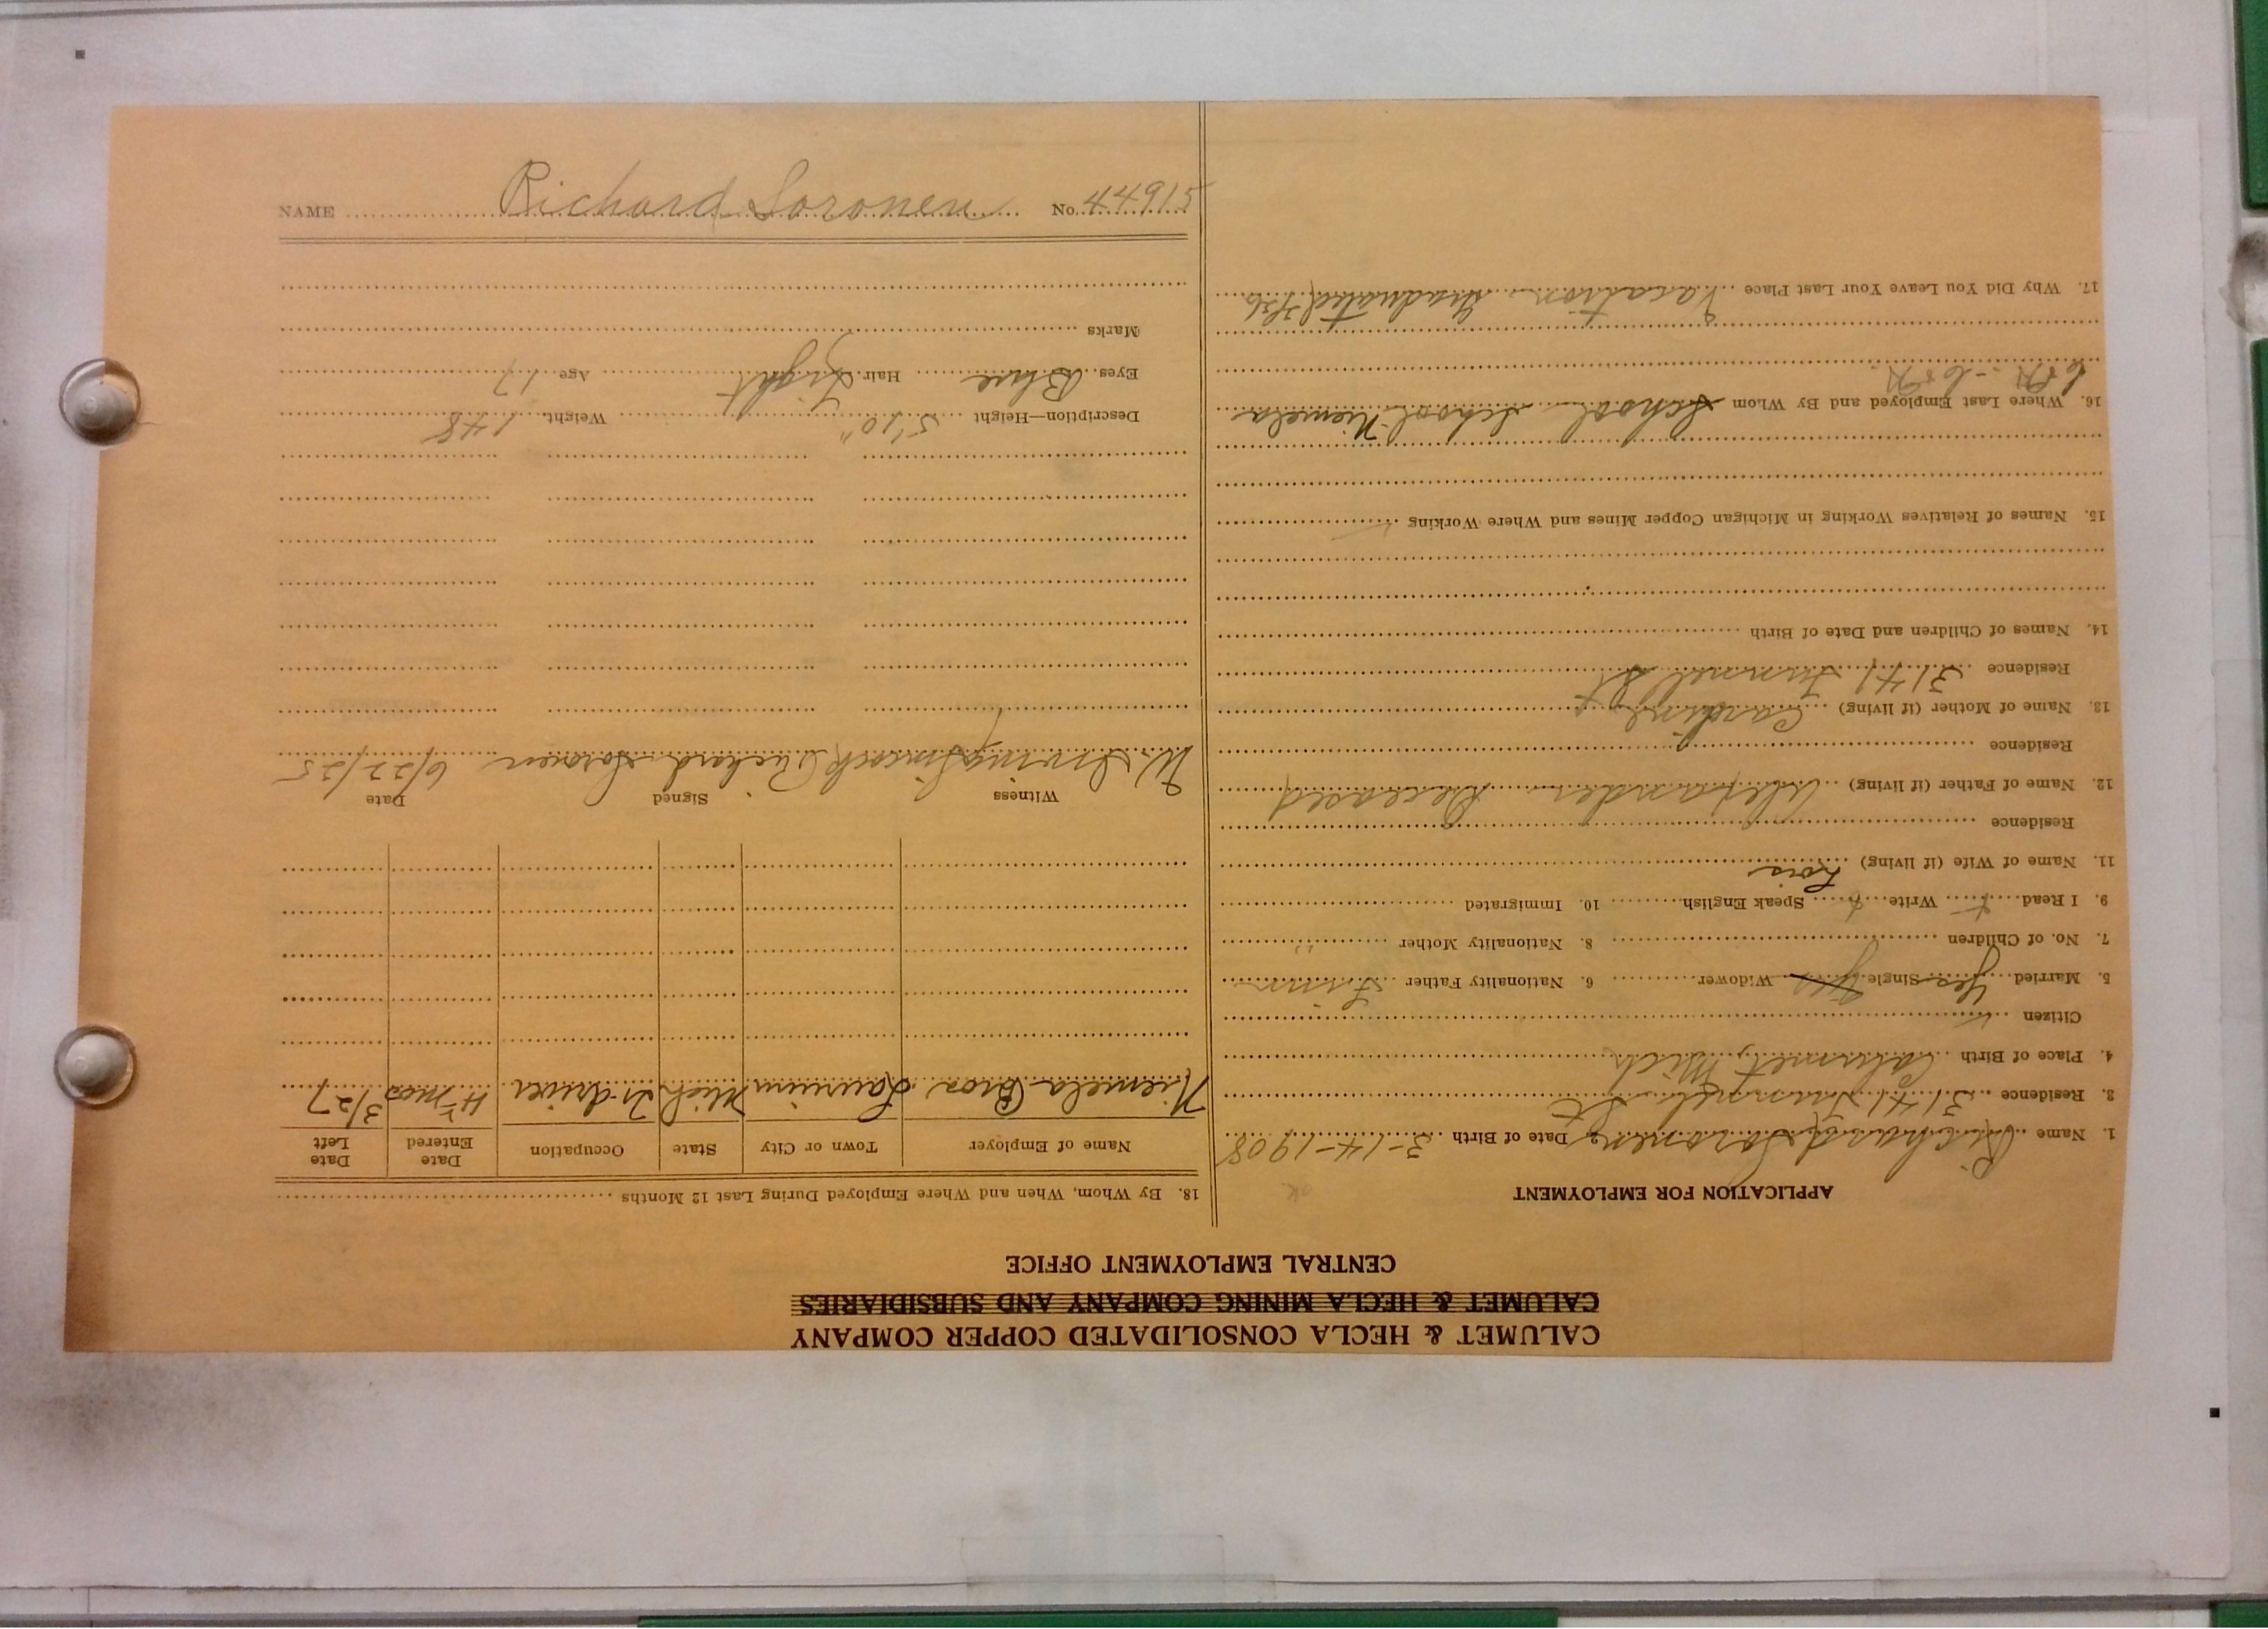 NAME Richard Soronen No. 44915
CALUMET & HECLA CONSOLIDATED COPPER COMPANY
CALUMET & HECLA MINING COMPANY AND SUBSIDIARIES
CENTRAL EMPLOYMENT OFFICE
APPLICATION FOR EMPLOYMENT
1. Name Richard Soronen Date of Birth 3-14-1908
3. Residence 3141 Tunnel St
4. Place of Birth Calumet, Mich
Citizen
5. Married Yes Single Widower 6. Nationality Father Finn
7. No. of Children 8. Nationality Mother "
9. I Read Write Speak English 10. Immigrated
11. Name of Wife (if living) Lois
Residence
12. Name of Father (if living) Alexander Deceased
Residence
13. Name of Mother (if living) Caroline
Residence 3141 Tunnel St
14. Names of Children and Date of Birth
15. Names of Relatives Working in Michigan Copper Mines and Where Working
16. Where Last Employed and By Whom School School Niemela
17. Why Did You Leave Your Last Place Vacation Graduated
18. By Whom, When and Where Employed During Last 12 Months
Name of Employer Town or City State Occupation Date Entered Date Left
Niemela Bros Laurium Mich Tr driver 4 mos 3/27
Witness Signed Date
W. Irving Richard Soronen 6/22/25
Description—Height 5'10" Weight 148
Eyes Blue Hair Light Age 17
Marks